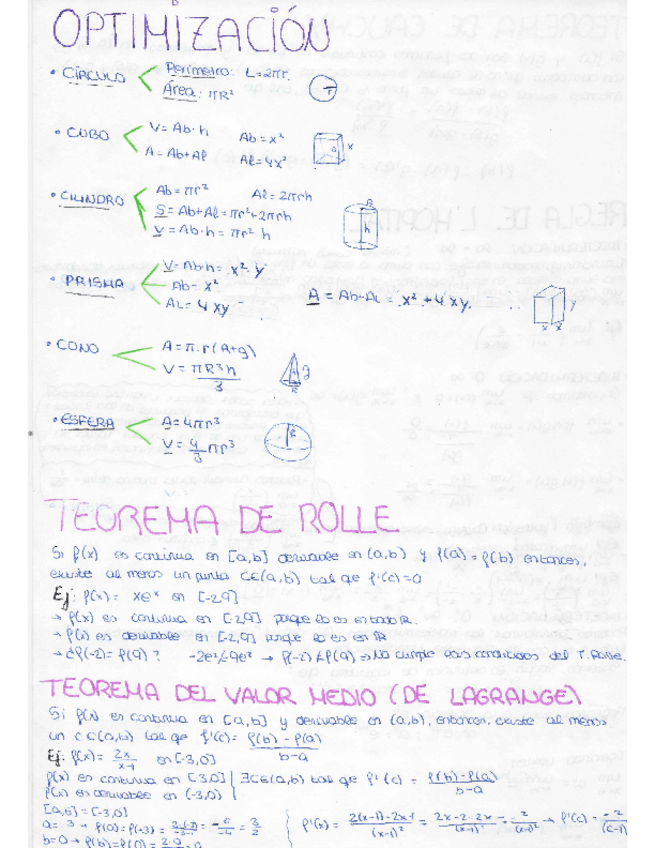 OPTIMIZACIÓN
• CÍRCULO
Perímetro: L=2πr.
Área: πR²
r
• CUBO
V= Ab·h
Ab= x²
A= Ab+Al
Al= 4x²
x
• CILINDRO
Ab= πr²
Al= 2πrh
S= Ab+Al= πr²+2πrh
V= Ab·h= πr² h
R
h
• PRISMA
V= Ab·h= x²· y
Ab= x²
AL= 4xy
A = Ab+AL = x²+4xy.
y
x x
• CONO
A= π·r(R+g)
V= πR³h/3
g
R
• ESFERA
A= 4πr³
V= 4/3 πr³
R
TEOREMA DE ROLLE
Si f(x) es continua en [a,b] derivable en (a,b) y f(a)= f(b) entonces,
existe al menos un punto c∈(a,b) tal que f'(c)=0
Ej: f(x)= xeˣ en [-2,9]
→ f(x) es continua en [-2,9] porque lo es en todo R.
→ f(x) es derivable en [-2,9] porque lo es en R
→ ¿f(-2)= f(9)? -2e² 9e² → f(-2)≠f(9) ⇒ No cumple las condiciones del T. Rolle.
TEOREMA DEL VALOR MEDIO (DE LAGRANGE)
Si f(x) es continua en [a,b] y derivable en (a,b), entonces, existe al menos
un c∈(a,b) tal que f'(c)= f(b)-f(a)/b-a
Ej: f(x)= 2x/x-1 en [-3,0]
f(x) es continua en [-3,0] | ∃c∈(a,b) tal que f'(c) = f(b)-f(a)/b-a
f(x) es derivable en (-3,0)
[a,b]=[-3,0]
a= -3 → f(a)= f(-3)= 2·(-3)/-3-1 = -6/-4 = 3/2
f'(x)= 2(x-1)-2x·1/(x-1)² = 2x-2-2x/(x-1)² = -2/(x-1)² → f'(c)= -2/(c-1)
b=0 → f(b)= f(0)= 2·0